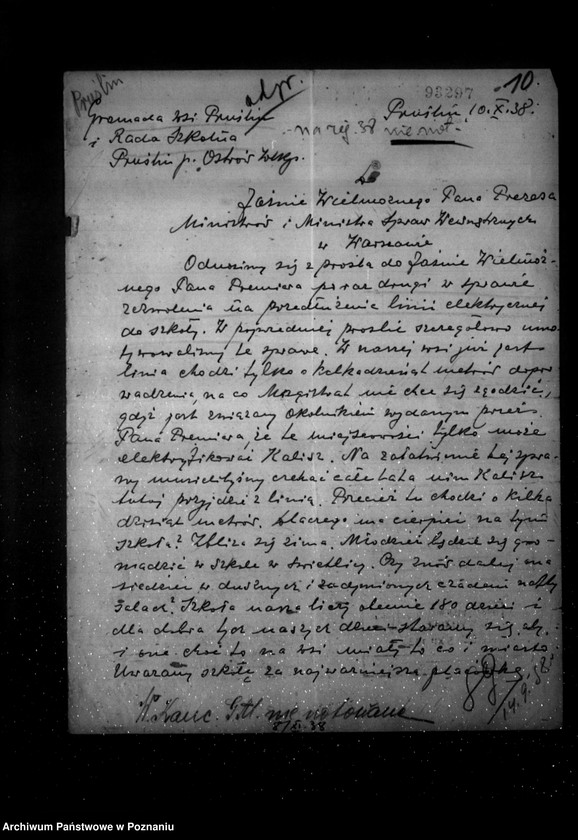 Pruślin
odpr.
93297
10.
gromada wsi Pruślin
i Rada Szkolna
Pruślin p. Ostrów Wlkp.
Pruślin, 10.X.38.
na rej. 38 nie not.
Do
Jaśnie Wielmożnego Pana Prezesa
Ministrów i Ministra Spraw Wewnętrznych
w Warszawie
Odnosimy się z prośbą do Jaśnie Wielmoż-
nego Pana Premiera po raz drugi w sprawie
zezwolenia na przedłużenia linii elektrycznej
do szkoły. W poprzedniej prośbie szczegółowo umo
tywowaliśmy tę sprawę. W naszej wsi już jest
linia chodzi tylko o kilkadziesiąt metrów dopro
wadzenia, na co Magistrat nie chce się zgodzić,
gdyż jest związany okolnikiem wydanym przez
Pana Premiera, że te miejscowości tylko może
elektryfikować Kalisz. Na załatwienie tej spra-
wy musielibyśmy czekać całe lata nim Kalisz
tutaj przyjdzie z linią. Przecież tu chodzi o kilka
dziesiąt metrów. Dlaczego ma cierpieć na tym
szkoła? Zbliża się zima. Młodzież będzie się gro-
madzić w szkole w świetlicy. Czy znów dalej ma
siedzieć w dusznych i zadymionych czadem nafty
salach? Szkoła nasza liczy obecnie 180 dzieci i
dla dobra tych naszych dzieci staramy się, aby
i one choć to na wsi miały to co i miasto.
Uważamy szkołę za najważniejszą placówkę,
W Kanc. Gł. nie notowano
14.9.38
Archiwum Państwowe w Poznaniu